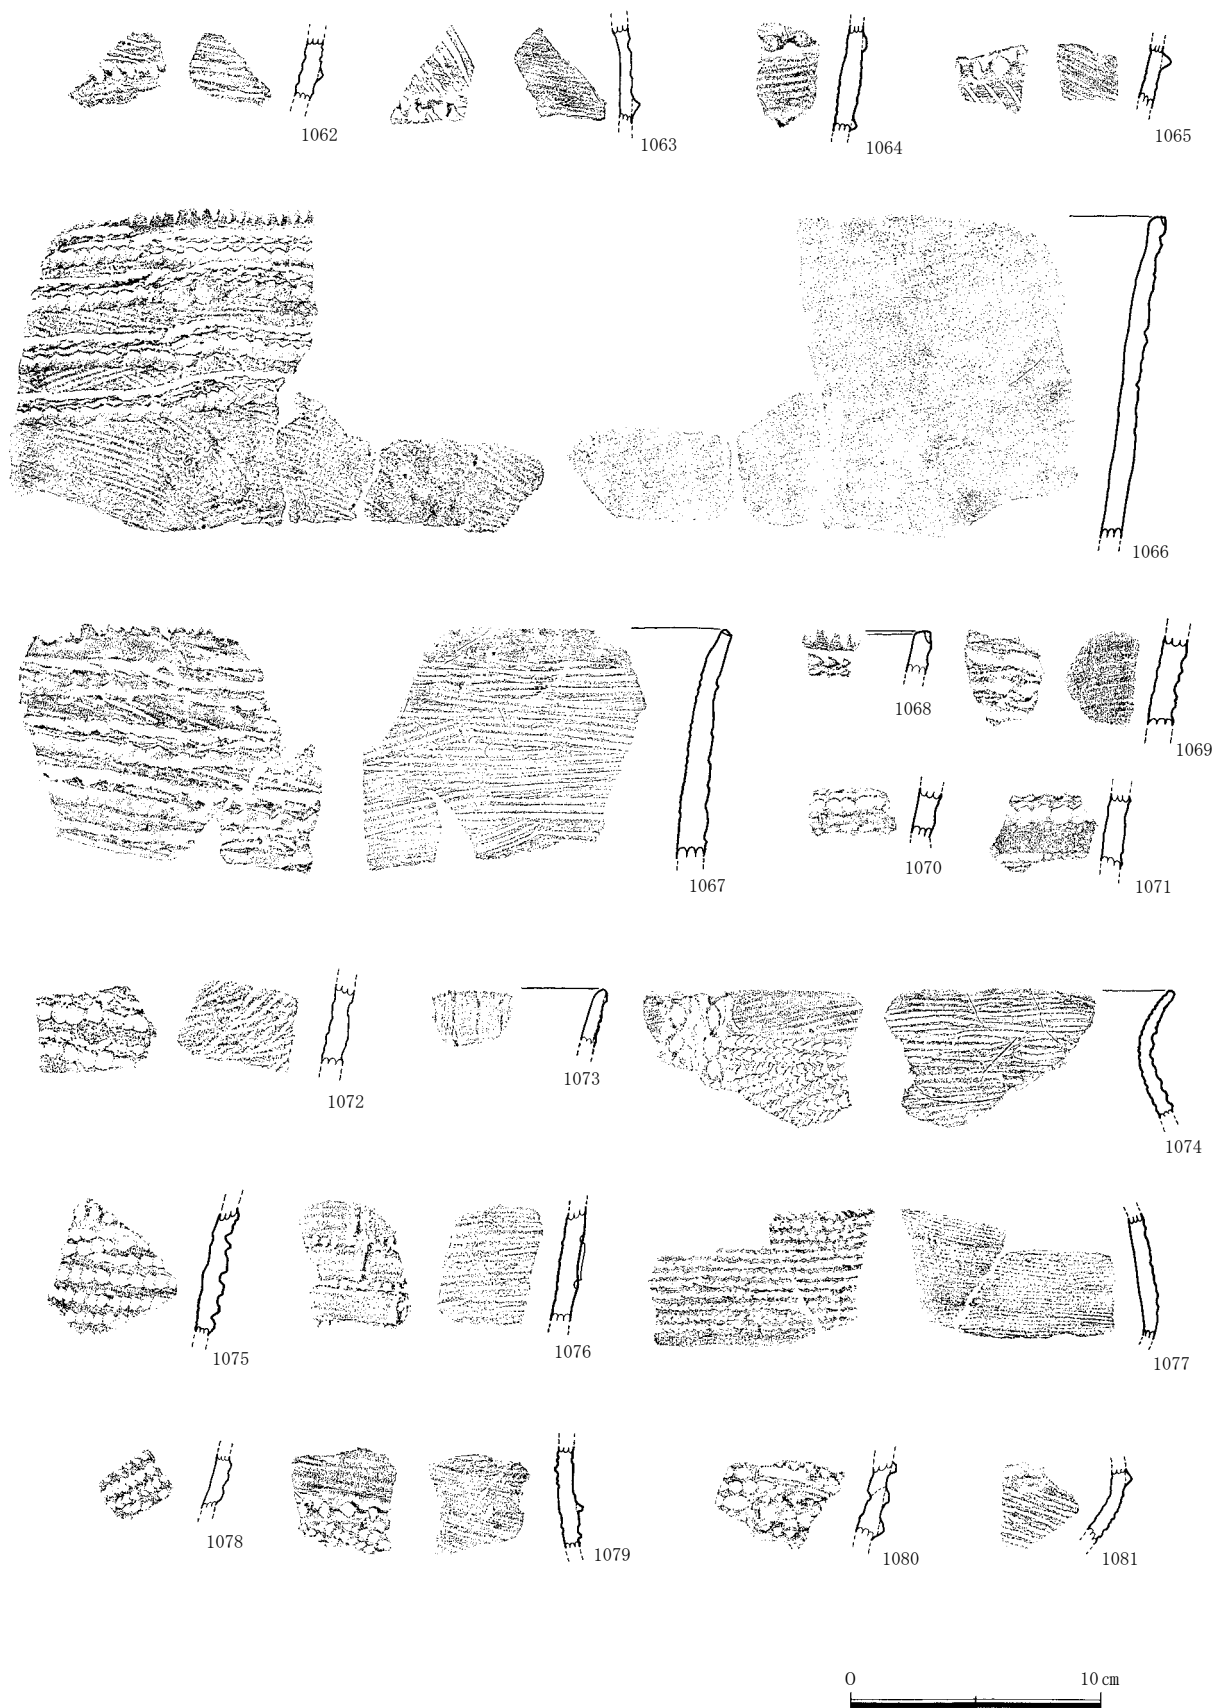 1062
1063
1064
1065
1066
1067
1068
1069
1070
1071
1072
1073
1074
1075
1076
1077
1078
1079
1080
1081
0 10cm